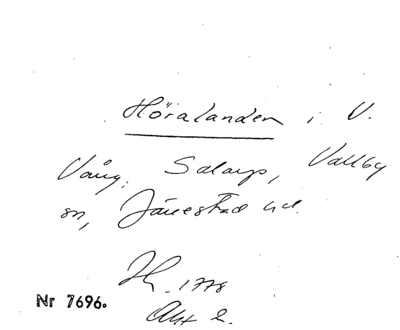 Höralanden i V.
Vång, Salarp, Vallby
sn, Järrestad hd.
Jh. 1778
Akt 2.
Nr 7696.